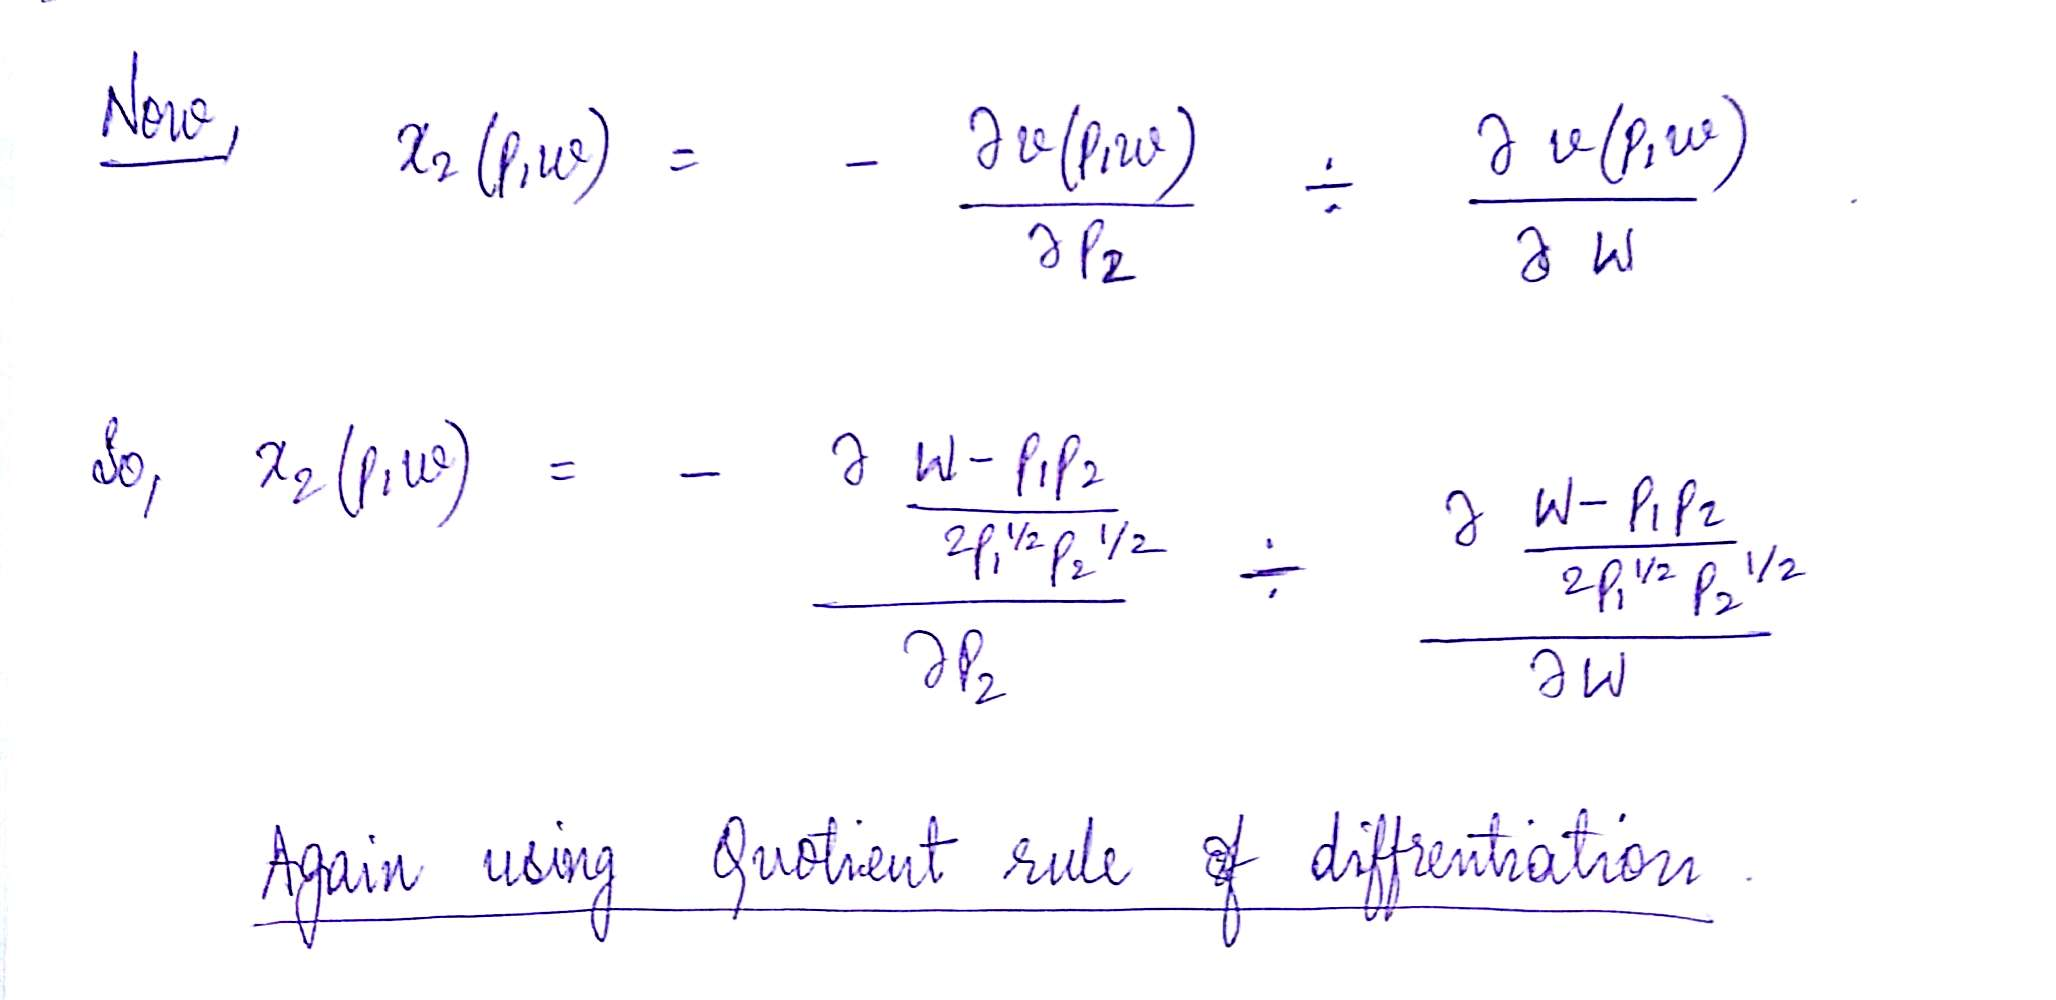 Now, x₂(p,w) = - ∂v(p,w)/∂P₂ ÷ ∂v(p,w)/∂W
So, x₂(p,w) = - ∂ (W-P₁P₂)/(2P₁^1/2 P₂^1/2) / ∂P₂ ÷ ∂ (W-P₁P₂)/(2P₁^1/2 P₂^1/2) / ∂W
Again using Quotient rule of diffrentiation.